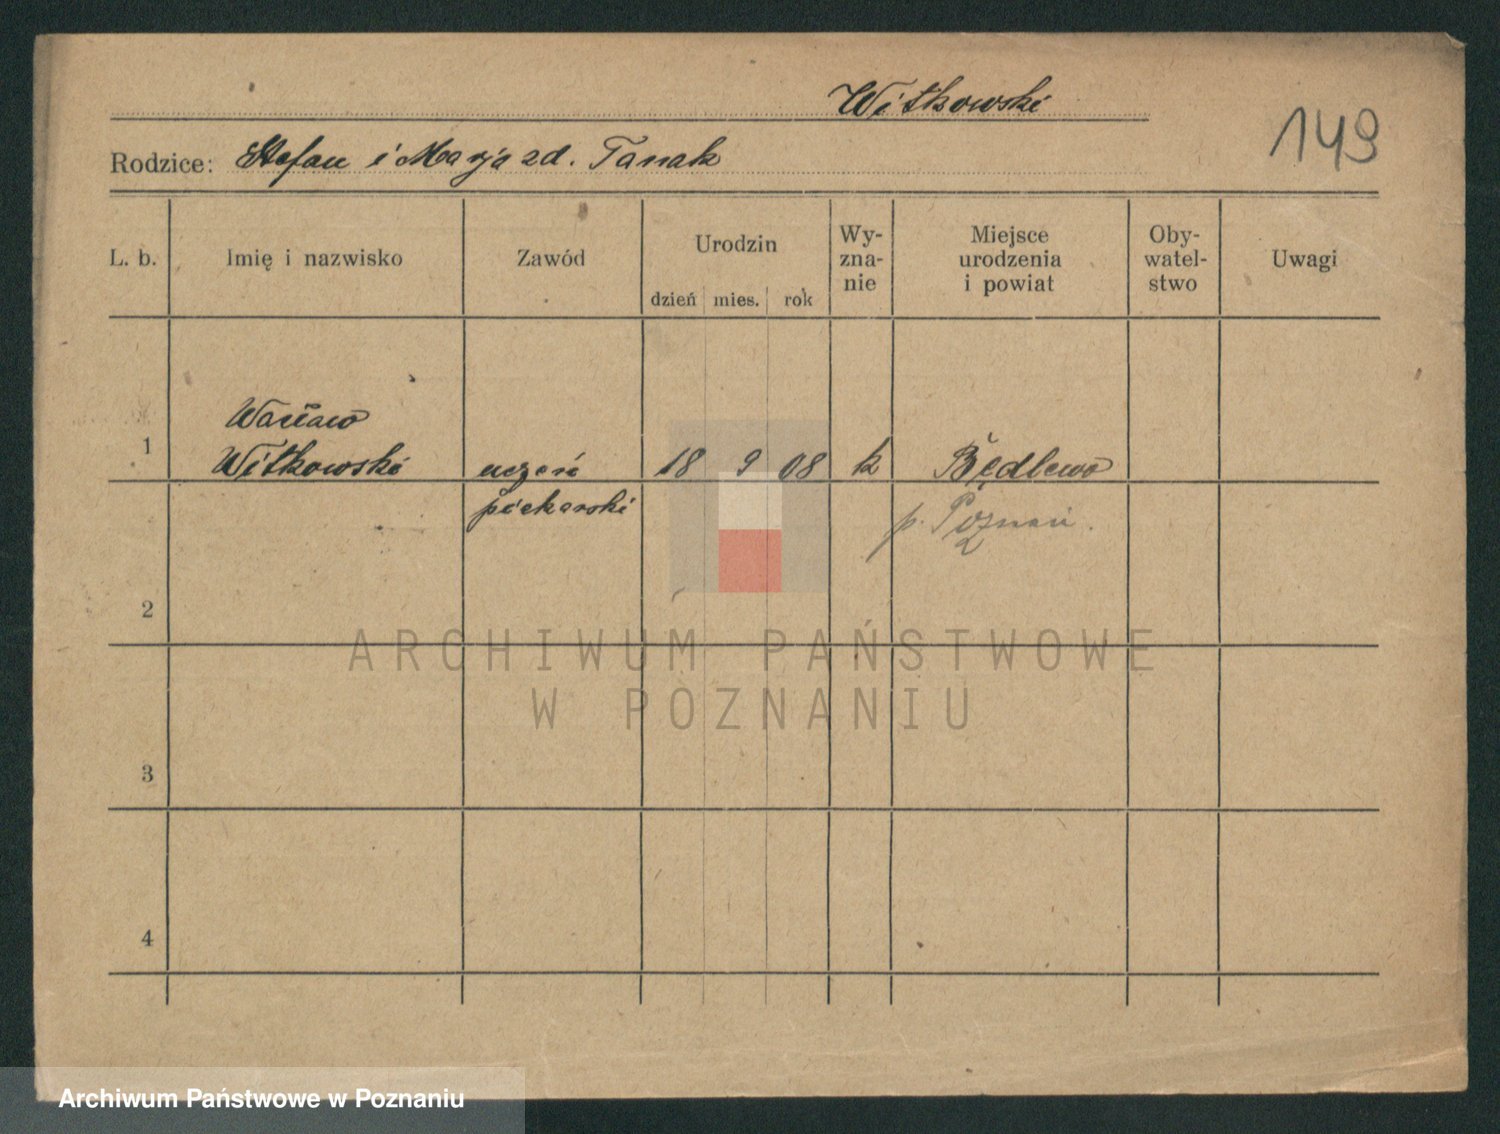 Witkowski
149
Rodzice: Stefan i Marja zd. Tanak
L. b.
Imię i nazwisko
Zawód
Urodzin
dzień mies. rok
Wy-
zna-
nie
Miejsce
urodzenia
i powiat
Oby-
watel-
stwo
Uwagi
1
Wacław
Witkowski
uczeń
piekarski
18 9 08
k
Będlewo
p. Poznań.
2
3
4
ARCHIWUM PAŃSTWOWE
W POZNANIU
Archiwum Państwowe w Poznaniu